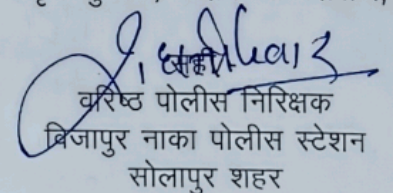 वरिष्ठ पोलीस निरिक्षक
विजापुर नाका पोलीस स्टेशन
सोलापुर शहर